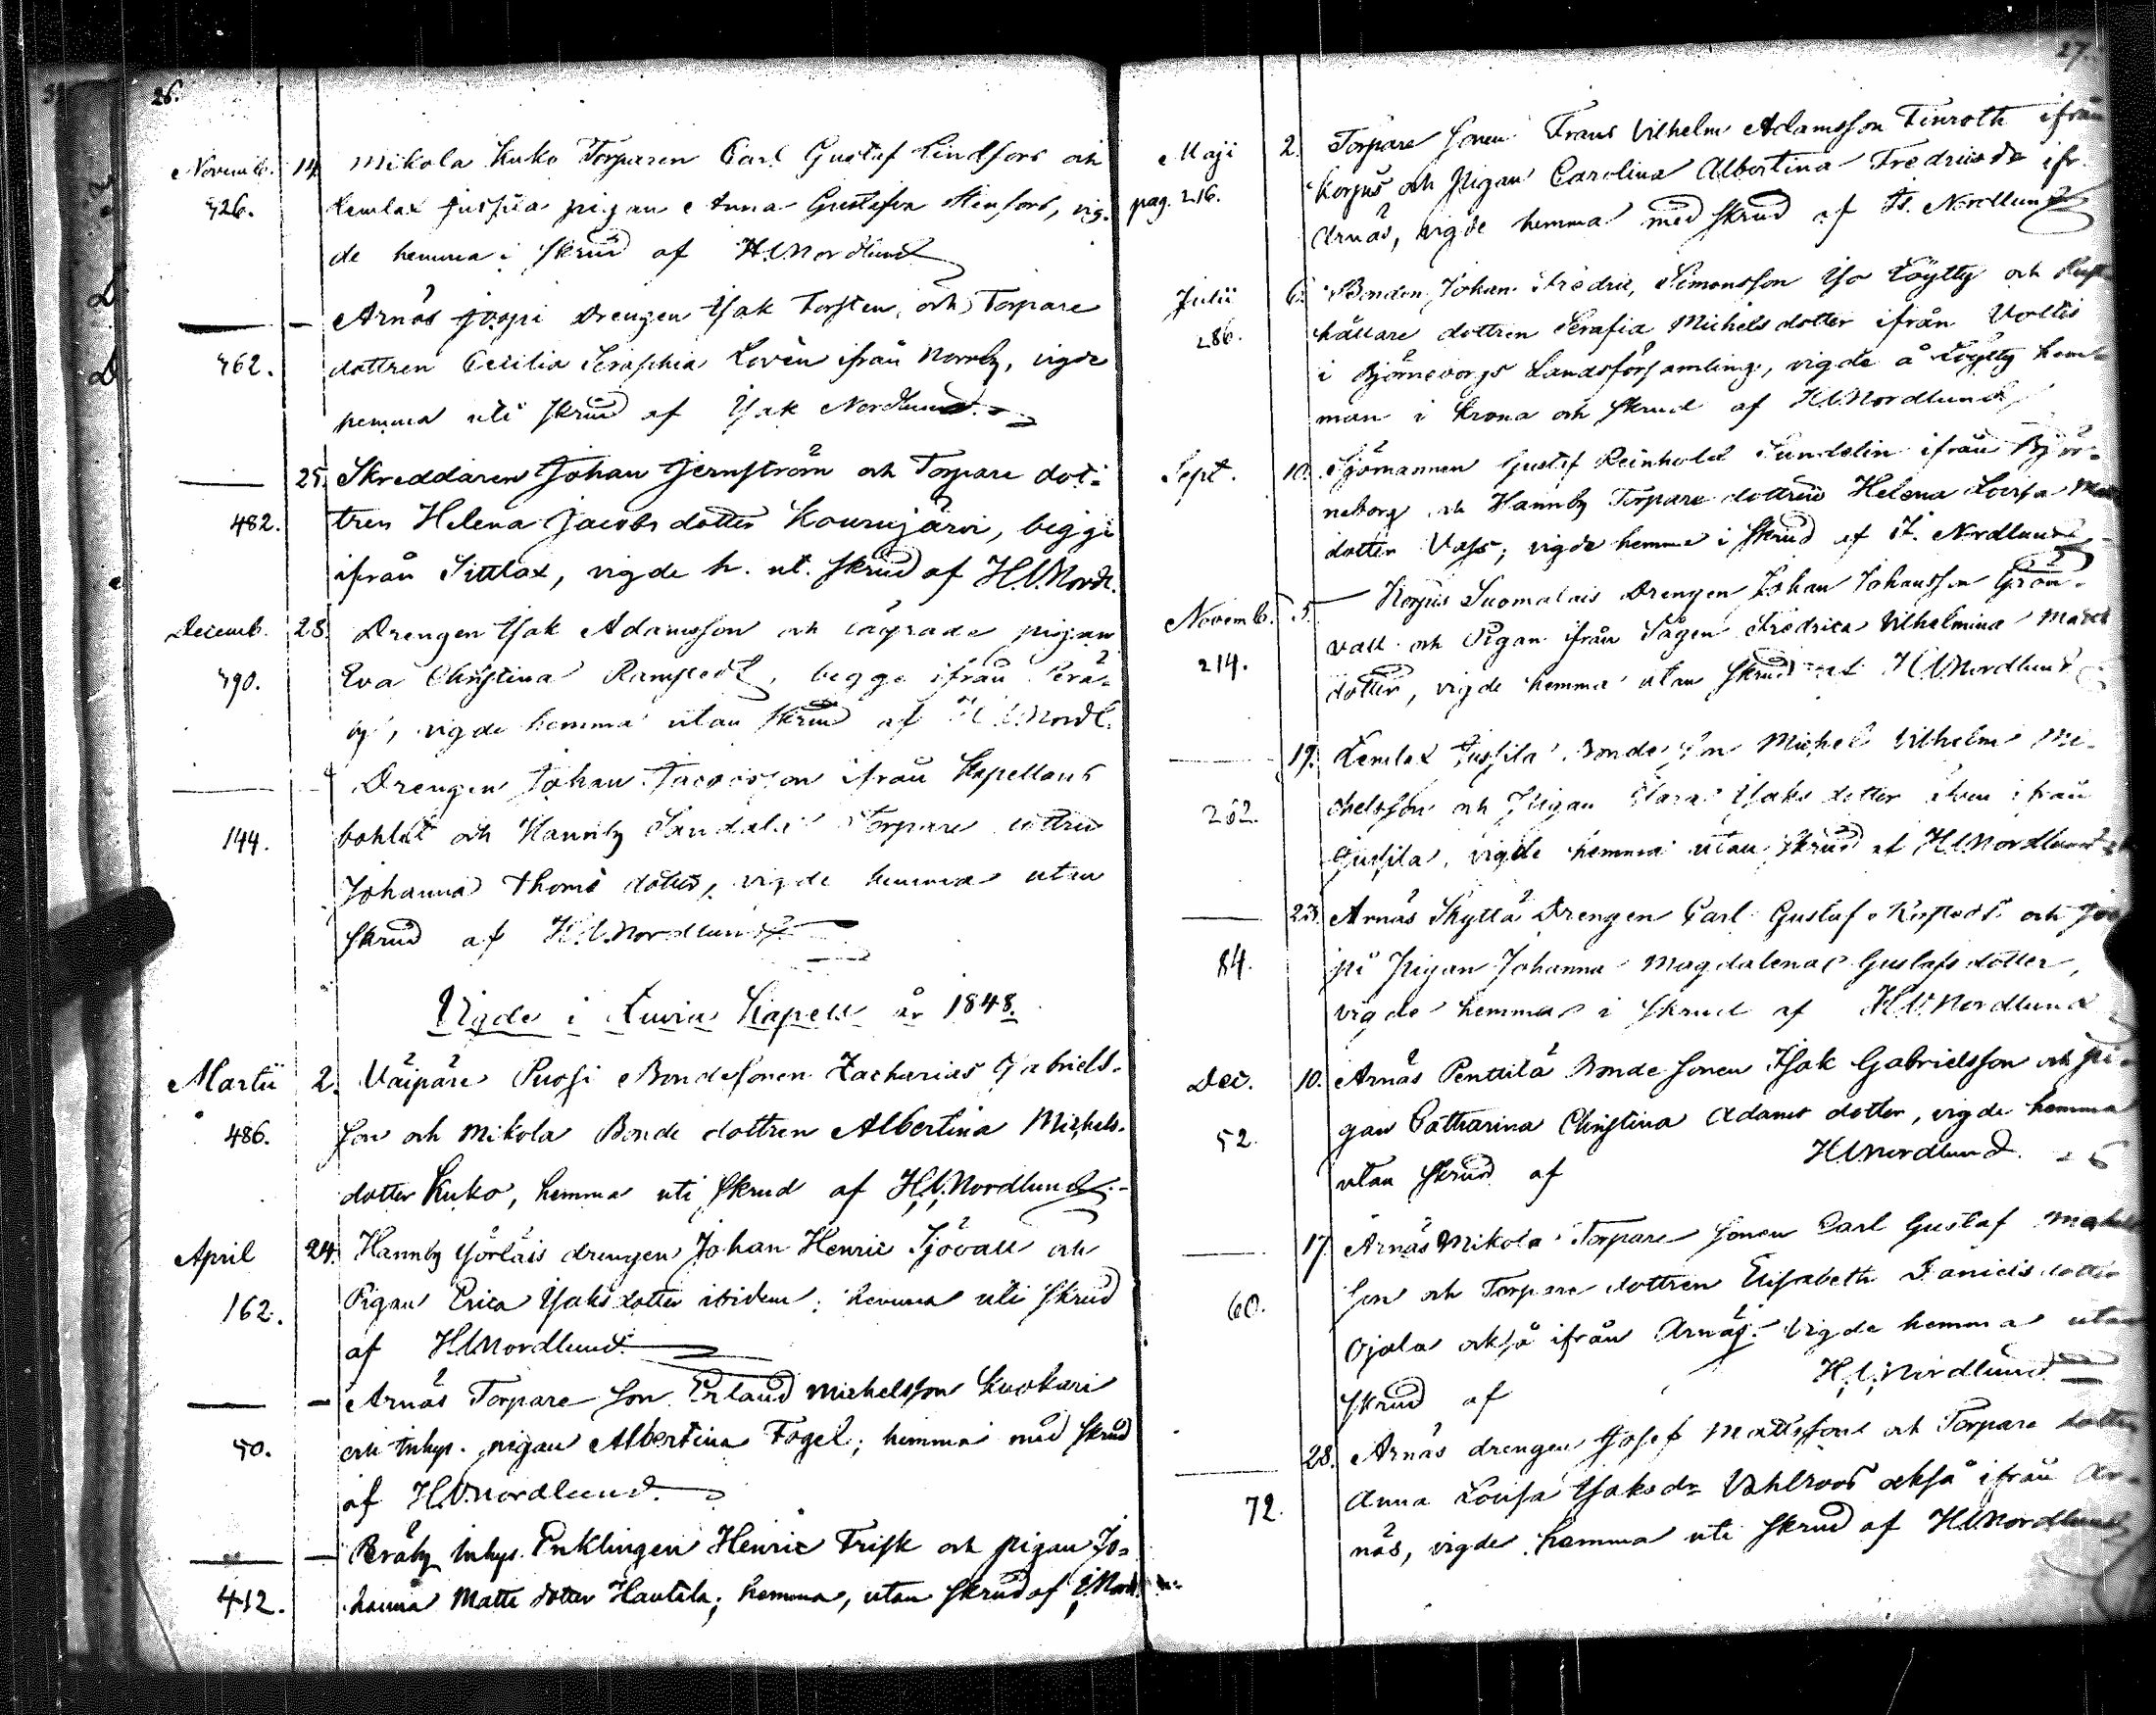 26.
Novemb. 14. Mikola Kuko Torparen Carl Gustaf Lindfors och
426. Lemlax Jussila pigan Anna Gustafva Stenfors, vig-
de hemma i skrud af H.U.Nordlund
— — Arnäs Jospi Drengen Isak Torsten och Torpare
462. dottren Cecilia Seraphia Lovén ifrån Norrby, vigde
hemma uti skrud af Isak Nordlund.
— 25. Skreddaren Johan Jernström och Torpare dot-
482. tren Helena Jacobs dotter Kourujärvi, begge
ifrån Sittlax, vigde h. ut. skrud af H.U.Nordl.
Decemb. 28. Drengen Isak Adamsson och lägrade pigan
490. Eva Christina Ramstedt, begge ifrån Perä-
by, vigde hemma utan skrud af H.U.Nordl.
— — Drengen Johan Jacobsson ifrån Kapellans
144. bohlet och Hannby Sandala Torpare dottren
Johanna Thomæ dotter, vigde hemma utan
skrud af H.U.Nordlund
Vigde i Luvia Kapell år 1848.
Martii 2. Väipäre Puosi Bondesonen Zacharias Gabriels-
486. son och Mikola Bonde dottren Albertina Michels-
dotter Kuko, hemma uti skrud af H.U.Nordlund.
April 24. Hannby Yörläis drengen Johan Henric Sjövall och
162. Pigan Erica Isaks dotter ibidem; hemma uti skrud
af H.U.Nordlund.
— — Arnäs Torpare son Erland Michelsson Kuokari
50. och inhys. pigan Albertina Fogel; hemma med skrud
af H.U.Nordlund.
— — Beräby Inhys. Enklingen Henric Frisk och pigan Jo-
412. hanna Matts dotter Hautala; hemma, utan skrud af
27.
Maji 2. Torpare sonen Frans Vilhelm Adamsson Finroth ifrån
pag. 216. Korpus och Pigan Carolina Albertina Fredricsdr ifr.
Arnäs, vigde hemma med skrud af Is. Nordlund
Julii 6. Bonden Johan Fredric Simonsson Iso Löytty och
286. hållare dottren Serafia Michels dotter ifrån Voltis
i Björneborgs Landsförsamling, vigde å Löytty hem-
man i krona och skrud af H.U.Nordlund
Sept. 10. Sjömannen Gustaf Reinhold Sundelin ifrån Björ-
neborg och Hannby Torpare dottren Helena Lovisa
dotter Vass; vigde hemma i skrud af H. Nordlund
Novemb. 5. Korpus Suomalais Drengen Johan Johansson Grön-
214. vall och Pigan ifrån Sågen Fredrica Vilhelmina
dotter, vigde hemma utan skrud af H.U.Nordlund
— 19. Lemlax Jussila Bonde son Michel Vilhelm Mi-
262. chelsson och Pigan Clara Isaks dotter även ifrån
Jussila, vigde hemma utan skrud af H.U.Nordlund
— 23. Arnäs Skyttä Drengen Carl Gustaf och Jos-
84. pi Pigan Johanna Magdalena Gustafs dotter,
vigde hemma i skrud af H.U.Nordlund
Dec. 10. Arnäs Penttilä Bonde sonen Isak Gabrielsson och pi-
52. gan Catharina Christina Adams dotter, vigde hemma
utan skrud af H.U.Nordlund.
— 17. Arnäs Mikola Torpare sonen Carl Gustaf Michels
60. son och Torpare dottren Elisabeth Daniels dotter
Ojala också ifrån Arnäs. Vigde hemma utan
skrud af H.U.Nordlund
— 28. Arnäs drengen Josef Mattsson och Torpare dotter
72. Anna Lovisa Isaks dr Vahlroos också ifrån Ar-
näs, vigde hemma uti skrud af H.U.Nordlund